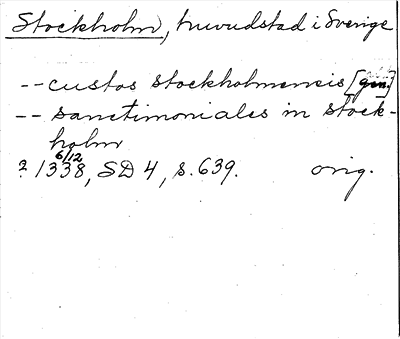 Stockholm, huvudstad i Sverige
-- custos stockholmensis [gen.]
-- sanctimoniales in Stock-
holm
6/12
? 1338, SD 4, s. 639. orig.